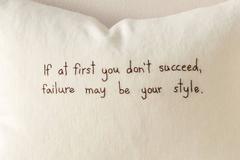 If at first you don't succeed,
failure may be your style.